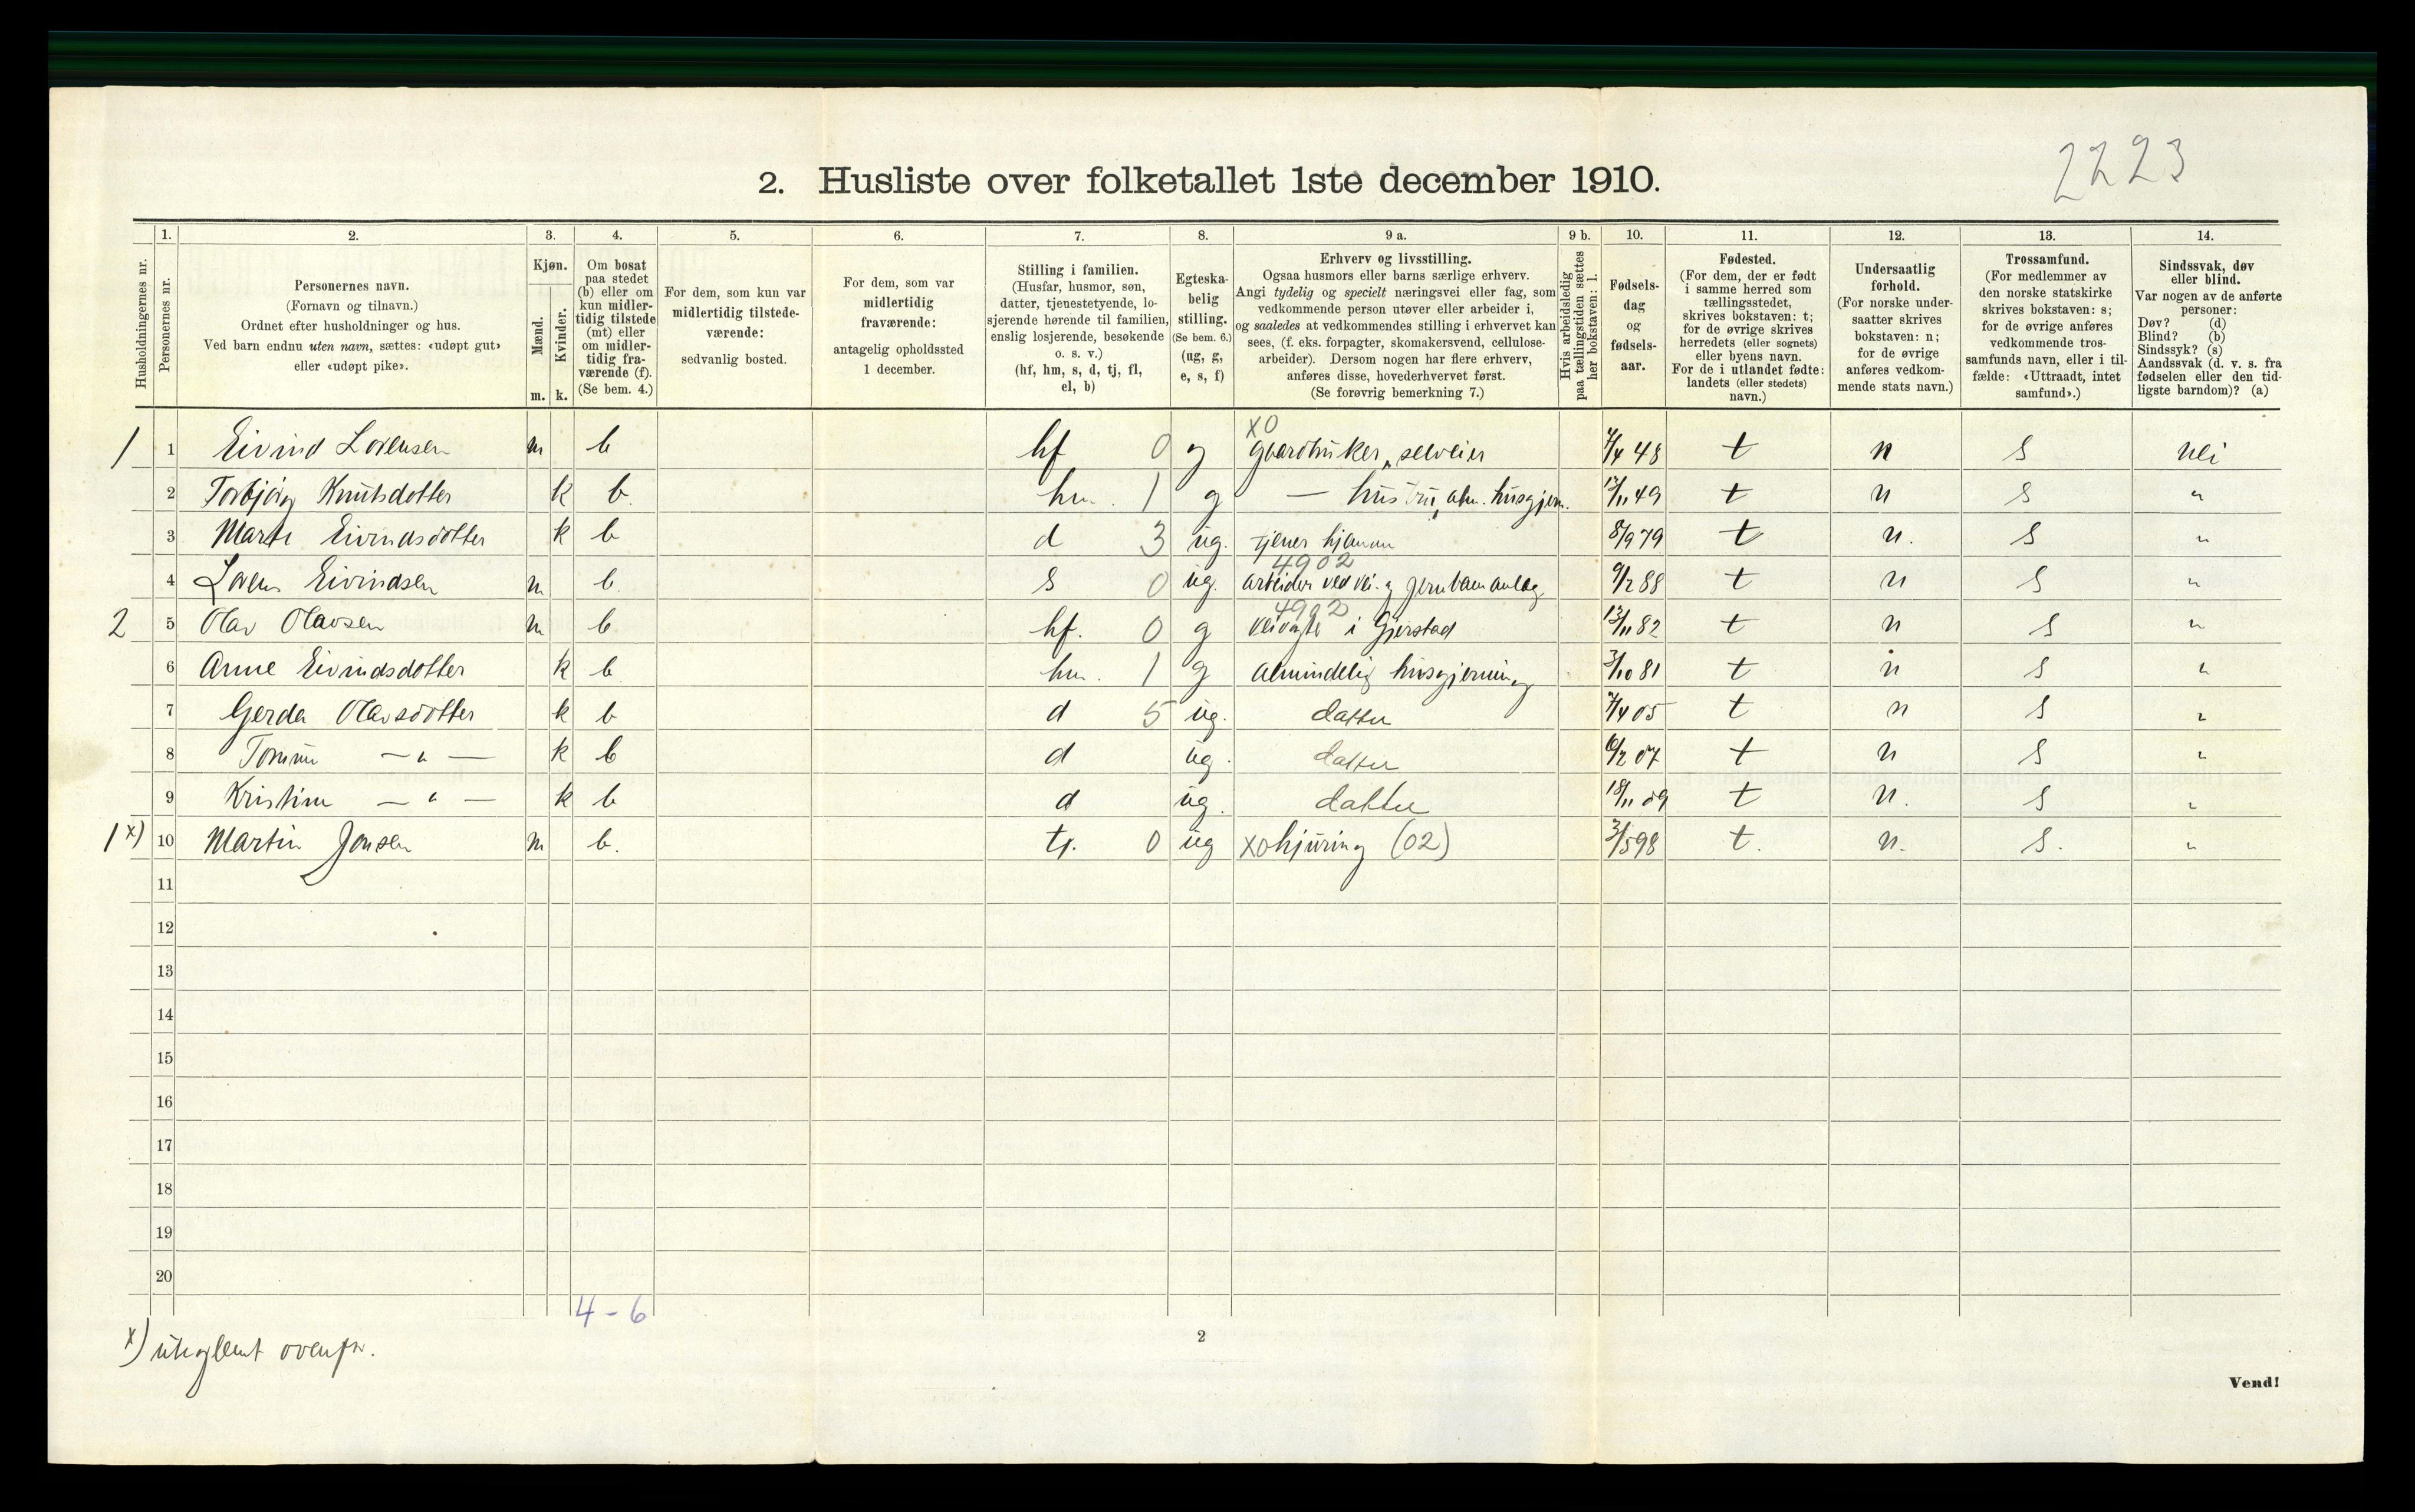 2223
2. Husliste over folketallet 1ste december 1910.
1. 2. 3. 4. 5. 6. 7. 8. 9 a. 9 b. 10. 11. 12. 13. 14.
Husholdningernes nr.
Personernes nr.
Personernes navn.
(Fornavn og tilnavn.)
Ordnet efter husholdninger og hus.
Ved barn endnu uten navn, sættes: «udøpt gut»
eller «udøpt pike».
Kjøn.
Mænd.
Kvinder.
m. k.
Om bosat
paa stedet
(b) eller om
kun midler-
tidig tilstede
(mt) eller
om midler-
tidig fra-
værende (f).
(Se bem. 4.)
For dem, som kun var
midlertidig tilstede-
værende:
sedvanlig bosted.
For dem, som var
midlertidig
fraværende:
antagelig opholdssted
1 december.
Stilling i familien.
(Husfar, husmor, søn,
datter, tjenestetyende, lo-
sjerende hørende til familien,
enslig losjerende, besøkende
o. s. v.)
(hf, hm, s, d, tj, fl,
el, b)
Egteska-
belig
stilling.
(Se bem. 6.)
(ug, g,
e, s, f)
Erhverv og livsstilling.
Ogsaa husmors eller barns særlige erhverv.
Angi tydelig og specielt næringsvei eller fag, som
vedkommende person utøver eller arbeider i,
og saaledes at vedkommendes stilling i erhvervet kan
sees, (f. eks. forpagter, skomakersvend, cellulose-
arbeider). Dersom nogen har flere erhverv,
anføres disse, hovederhvervet først.
(Se forøvrig bemerkning 7.)
Hvis arbeidsledig
paa tællingstiden sættes
her bokstaven: l.
Fødsels-
dag
og
fødsels-
aar.
Fødested.
(For dem, der er født
i samme herred som
tællingsstedet,
skrives bokstaven: t;
for de øvrige skrives
herredets (eller sognets)
eller byens navn.
For de i utlandet fødte:
landets (eller stedets)
navn.)
Undersaatlig
forhold.
(For norske under-
saatter skrives
bokstaven: n;
for de øvrige
anføres vedkom-
mende stats navn.)
Trossamfund.
(For medlemmer av
den norske statskirke
skrives bokstaven: s;
for de øvrige anføres
vedkommende tros-
samfunds navn, eller i til-
fælde: «Uttraadt, intet
samfund».)
Sindssvak, døv
eller blind.
Var nogen av de anførte
personer:
Døv? (d)
Blind? (b)
Sindssyk? (s)
Aandssvak (d. v. s. fra
fødselen eller den tid-
ligste barndom)? (a)
XO
1 1 Eivind Lorensen m b hf 0 g gaardbruker, selveier 7/4 48 t n s nei
2 Torbjörg Knutsdotter k b. hm. 1 g — hustru, alm. husgjern. 13/11 49 t n s "
3 Marte Eivindsdotter k b d 3 ug. tjener hjemme 8/9 79 t n. s "
4902
4 Lorens Eivindsen m b. s 0 ug. arbeider ved vei- og jernbaneanlæg 9/2 88 t n s "
4902
2 5 Olav Olavsen m b hf. 0 g veivogter i Gjerstad 13/11 82 t n s "
6 Anne Eivindsdotter k b hm. 1 g almindelig husgjerning 3/10 81 t n s "
7 Gerda Olavsdotter k b d 5 ug. datter 7/4 05 t n s "
8 Tomine — " — k b d ug. datter 6/2 07 t n s "
9 Kristine — " — k b d ug. datter 18/11 09 t n. s "
1 x) 10 Martin Jonsen m b. tj. 0 ug XO hjuring (02) 3/5 98 t. n. s. "
11
12
13
14
15
16
17
18
19
20
4 - 6
x) uteglemt ovenfr.
2
Vend!